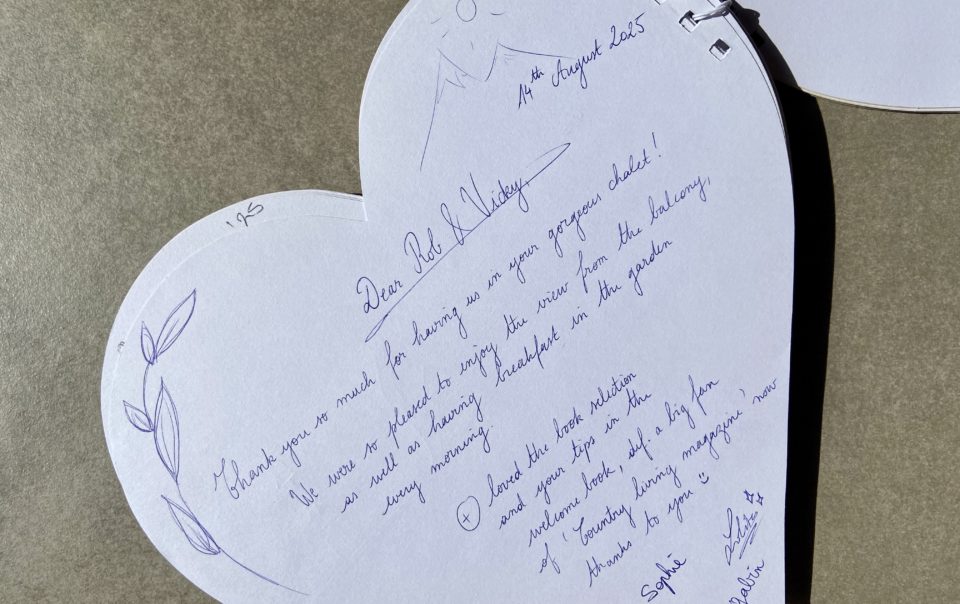 14th August 2025
'25
Dear Rob & Vicky,
Thank you so much for having us in your gorgeous chalet!
We were so pleased to enjoy the view from the balcony,
as well as having breakfast in the garden
every morning.
+ loved the book selection
and your tips in the
welcome book, def. a big fan
of 'Country living magazine' now
thanks to you
Sophie